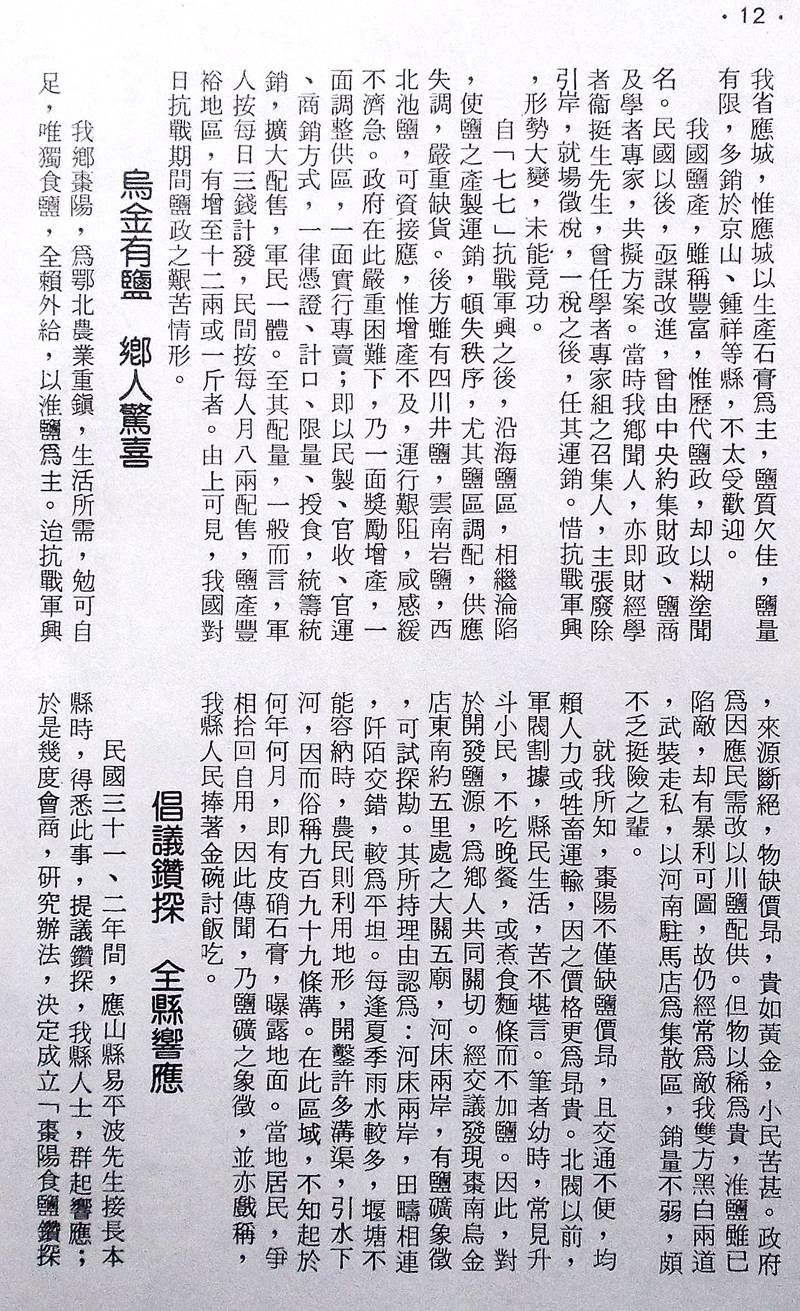 ·12·
我省應城，惟應城以生產石膏爲主，鹽質欠佳，鹽量
有限，多銷於京山、鍾祥等縣，不太受歡迎。
我國鹽產，雖稱豐富，惟歷代鹽政，却以糊塗聞
名。民國以後，亟謀改進，曾由中央約集財政、鹽商
及學者專家，共擬方案。當時我鄉聞人，亦即財經學
者衞挺生先生，曾任學者專家組之召集人，主張廢除
引岸，就場徵稅，一稅之後，任其運銷。惜抗戰軍興
，形勢大變，未能竟功。
自「七七」抗戰軍興之後，沿海鹽區，相繼淪陷
，使鹽之產製運銷，頓失秩序，尤其鹽區調配，供應
失調，嚴重缺貨。後方雖有四川井鹽，雲南岩鹽，西
北池鹽，可資接應，惟增產不及，運行艱阻，咸感緩
不濟急。政府在此嚴重困難下，乃一面獎勵增產，一
面調整供區，一面實行專賣；即以民製、官收、官運
、商銷方式，一律憑證、計口、限量、授食，統籌統
銷，擴大配售，軍民一體。至其配量，一般而言，軍
人按每日三錢計發，民間按每人月八兩配售，鹽產豐
裕地區，有增至十二兩或一斤者。由上可見，我國對
日抗戰期間鹽政之艱苦情形。
烏金有鹽　鄉人驚喜
我鄉棗陽，爲鄂北農業重鎭，生活所需，勉可自
足，唯獨食鹽，全賴外給，以淮鹽爲主。迨抗戰軍興
，來源斷絕，物缺價昂，貴如黃金，小民苦甚。政府
爲因應民需改以川鹽配供。但物以稀爲貴，淮鹽雖已
陷敵，却有暴利可圖，故仍經常爲敵我雙方黑白兩道
，武裝走私，以河南駐馬店爲集散區，銷量不弱，頗
不乏挺險之輩。
就我所知，棗陽不僅缺鹽價昂，且交通不便，均
賴人力或牲畜運輸，因之價格更爲昂貴。北閥以前，
軍閥割據，縣民生活，苦不堪言。筆者幼時，常見升
斗小民，不吃晚餐，或煮食麵條而不加鹽。因此，對
於開發鹽源，爲鄉人共同關切。經交議發現棗南烏金
店東南約五里處之大關五廟，河床兩岸，有鹽礦象徵
，可試探勘。其所持理由認爲：河床兩岸，田疇相連
，阡陌交錯，較爲平坦。每逢夏季雨水較多，堰塘不
能容納時，農民則利用地形，開鑿許多溝渠，引水下
河，因而俗稱九百九十九條溝。在此區域，不知起於
何年何月，即有皮硝石膏，曝露地面。當地居民，爭
相拾回自用，因此傳聞，乃鹽礦之象徵，並亦戲稱，
我縣人民捧著金碗討飯吃。
倡議鑽探　全縣響應
民國三十一、二年間，應山縣易平波先生接長本
縣時，得悉此事，提議鑽探，我縣人士，群起響應；
於是幾度會商，研究辦法，決定成立「棗陽食鹽鑽探